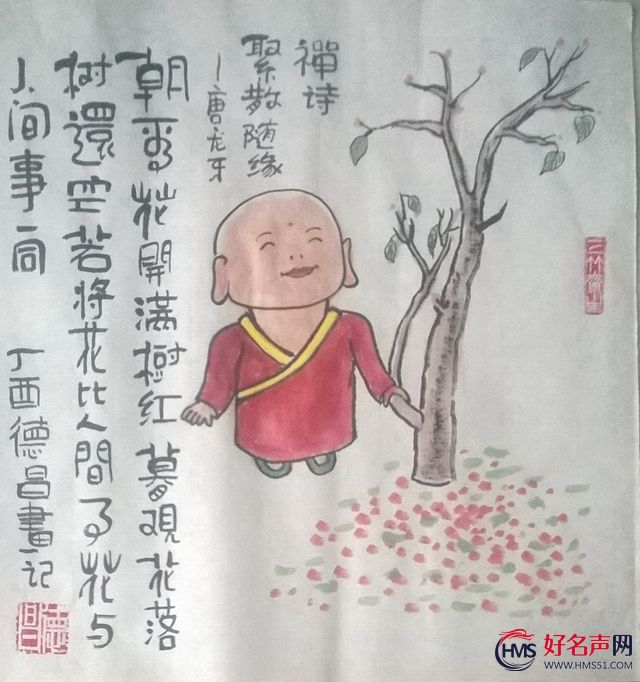 禪诗
聚散随缘
—唐龙牙
朝看花開满樹红 暮觀花落
树還空若将花比人間事花与
人间事一同 丁酉德昌畫记
德昌
HMS 好名声网
WWW.HMS51.COM